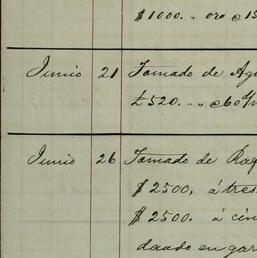 $1000. " oro a 15
Junio 21 Tomado de Agu
£520. " " a 60 d/
Junio 26 Tomado de Raq
$2500, á tres
$2500. á cin
dando en gar